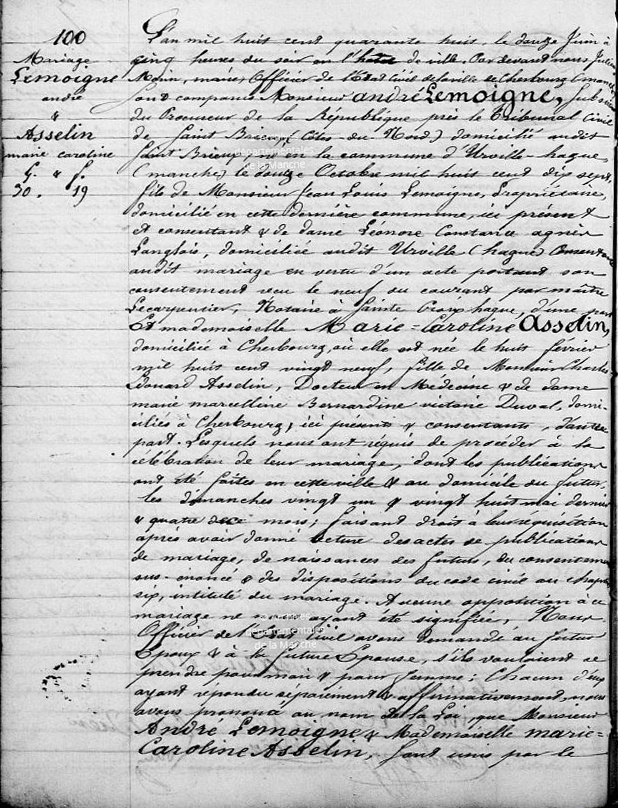 100
Mariage
Lemoigne
andré
&
Asselin
marie caroline
G. & f.
30. 19
L'an mil huit cent quarante huit, le douze Juin à
cinq heures du soir en l'hôtel de ville, Par devant nous Julien
maire, Officier de l'Etat Civil de la ville de Cherbourg (manche)
sont comparus Monsieur andré Lemoigne, Substitut
du Procureur de la République près le Tribunal Civil
de Saint Brieux (Côtes-du-Nord) domicilié audit
Saint Brieux, la commune d'Urville-hague
(manche) le douze Octobre mil huit cent dix sept,
fils de Monsieur Jean Louis Lemoigne, Propriétaire,
domicilié en cette dernière commune, ici présent
et consentant & de dame Léonore Constance agnès
Langlois, domiciliée audit Urville (hague) Consentante
audit mariage en vertu d'un acte portant son
consentement reçu le neuf du courant par maître
Lecarpentier, Notaire à Sainte Croix hague, d'une part
Et mademoiselle Marie-Caroline Asselin,
domiciliée à Cherbourg, où elle est née le huit février
mil huit cent vingt neuf, fille de Monsieur Charles
Edouard Asselin, Docteur en Médecine & de dame
marie marcelline Bernardine victoire Duval, domi-
ciliés à Cherbourg, ici présents & consentants, d'autre
part. Lesquels nous ont requis de procéder à la
célébration de leur mariage, dont les publications
ont été faites en cette ville & au domicile du futur
les dimanches vingt un & vingt huit mai dernier
& quatre de ce mois; faisant droit à leur réquisition
après avoir donné lecture des actes de publications
de mariage, de naissances des futurs, du consentement
sus-énoncé & des dispositions du code civil au chapitre
six, intitulé du mariage. Aucune opposition à ce
mariage ne nous ayant été signifiée, Nous
Officier de l'Etat Civil avons demandé au futur
Epoux & à la future Epouse, s'ils voulaient se
prendre pour mari & pour femme: Chacun d'eux
ayant répondu séparément & affirmativement nous
avons prononcé au nom de la Loi, que Monsieur
André Lemoigne & Mademoiselle marie-
Caroline Asselin, sont unis par le
départementales
de la Manche